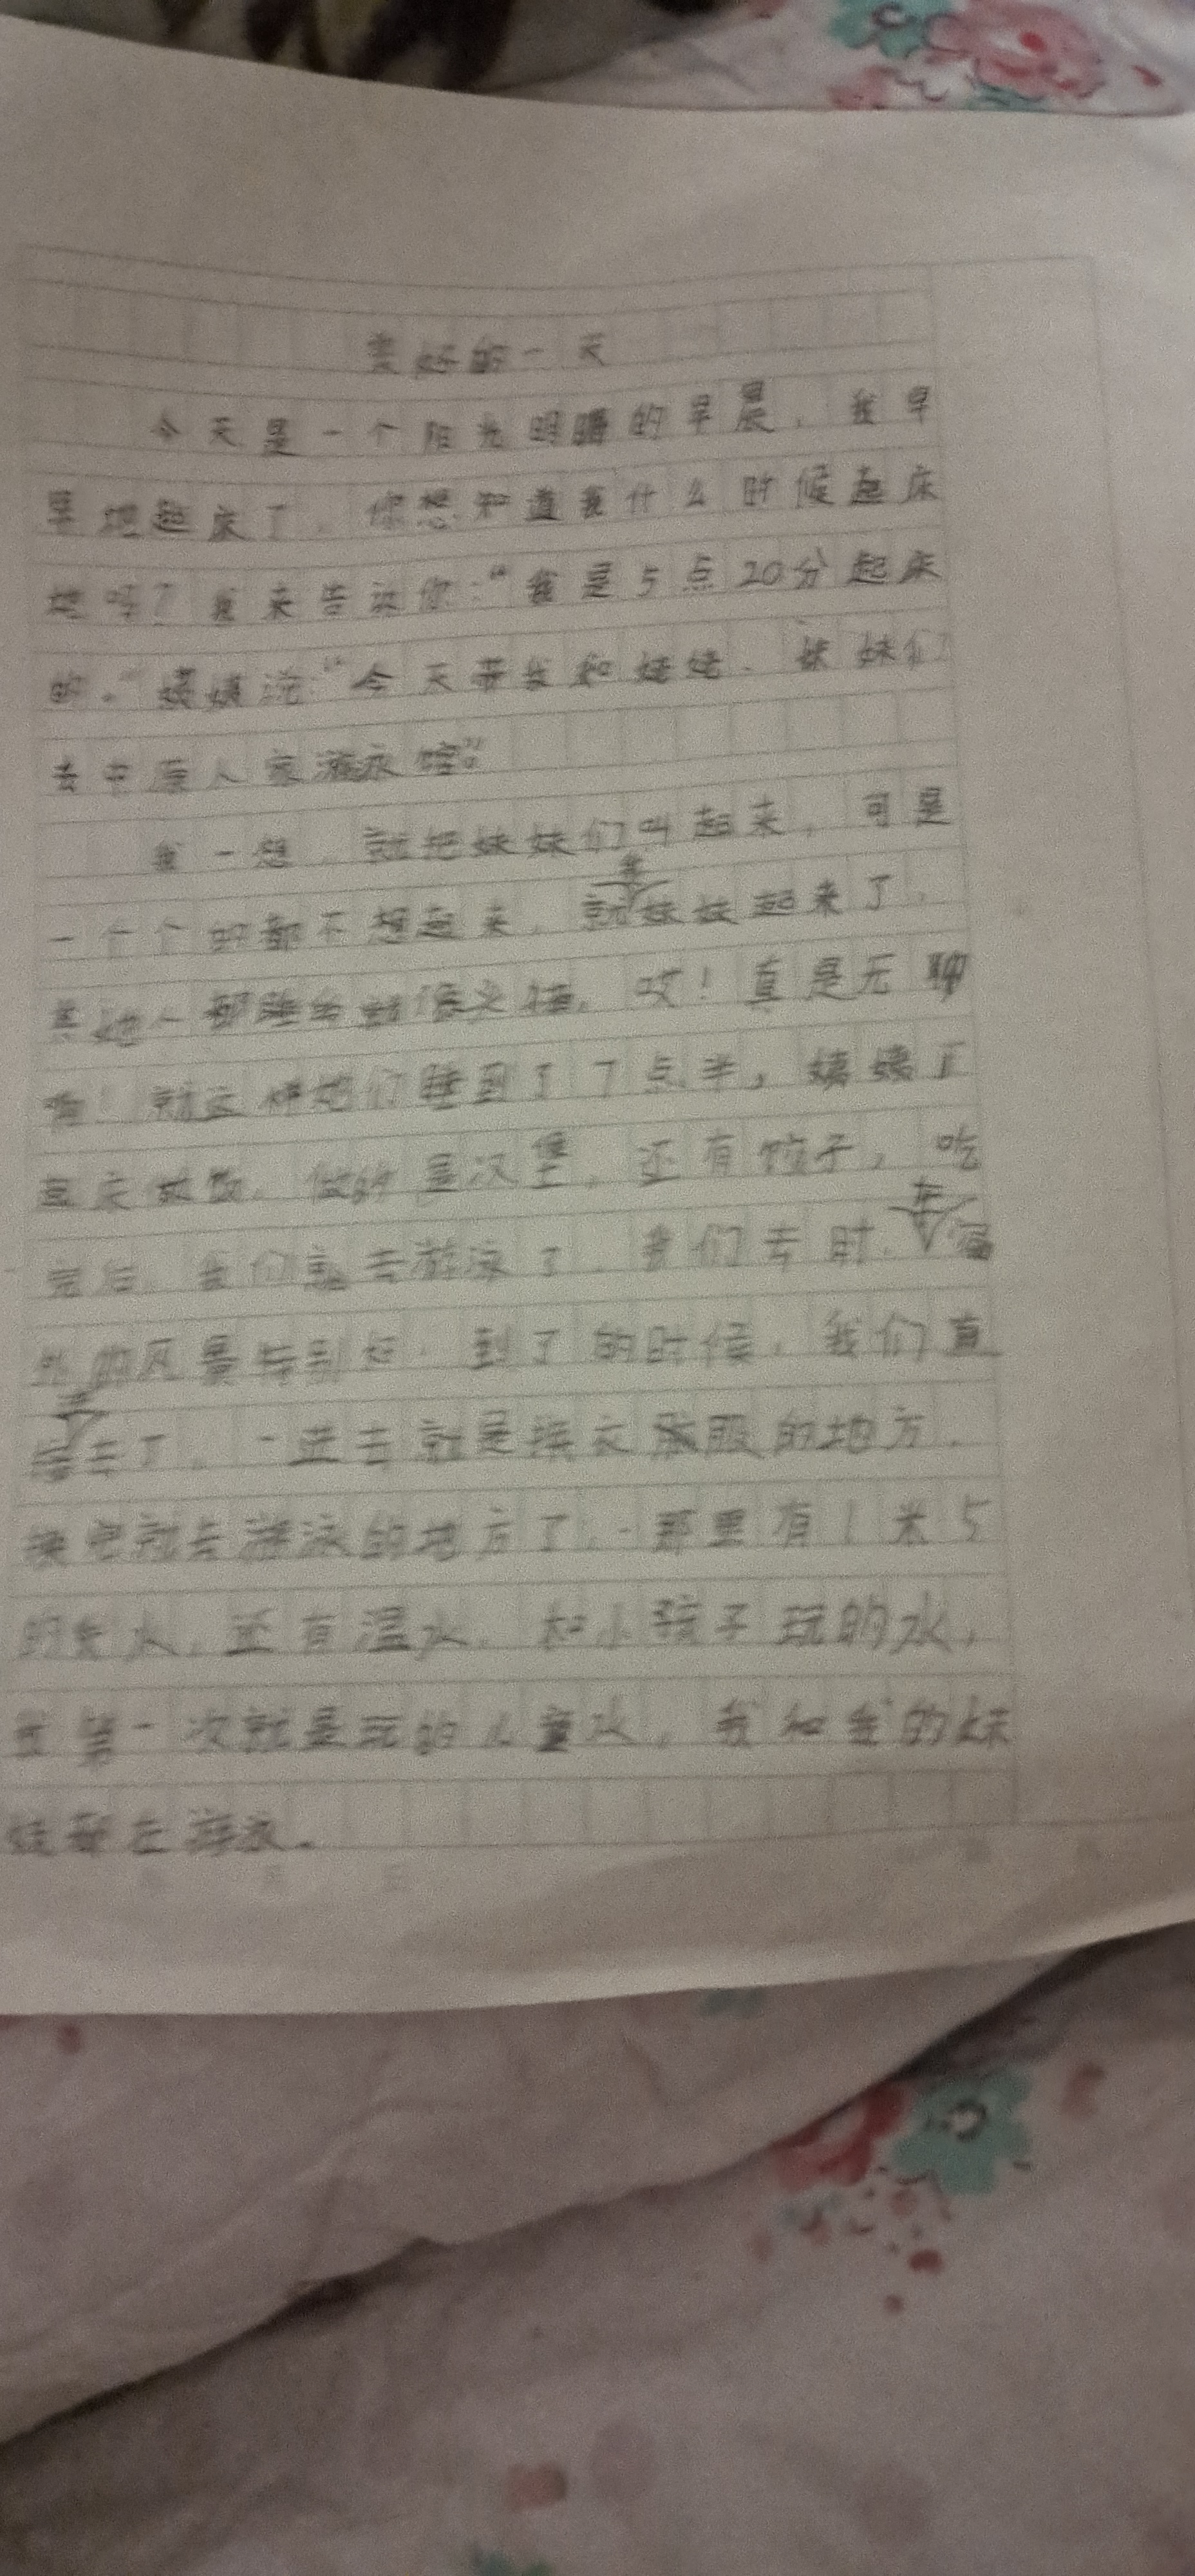 美好的一天
今天是一个阳光明媚的早晨，我早
早地起床了，你想知道我什么时候起床
地吗？我来告诉你："我是5点20分起床
的。"姨姨说："今天带我和姥姥、妹妹们
去中原人家游泳馆"
我一想，就把妹妹们叫起来，可是
一个个的都不想起来，就妹妹起来了，
其她人都睡的就像火猪，哎！真是无聊
啊！就这样她们睡到了7点半，姨姨正
起床做饭，做的是汉堡，还有饺子，吃
完后，我们就去游泳了，我们去时，车窗
外的风景特别好，到了的时候，我们直
接去了。一进去就是换衣服的地方，
换完就去游泳的地方了，那里有1米5
的水，还有温水，和小孩子玩的水，
我第一次就是玩的儿童水，我和我的妹
妹都在游泳。